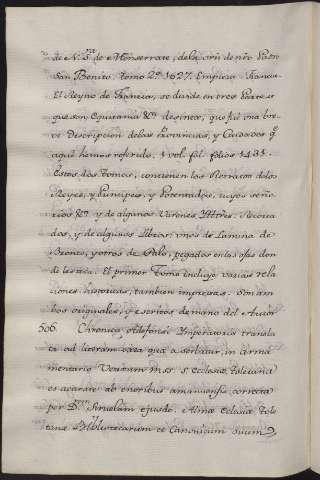 de N.ª S.ra de Monserrate, de la orn̄ de nr̄o Padre
San Benito. Tomo 2.º 1627. Empieza: Francia.
El Reyno de Francia, se divide en tres Partes
que son Equitania &c.ª desinit, que fué una bre-
ve Descripcion de las Provincias, y Ciudades q.e
aqui hemos referido. 1 vol. fol. folios 1431.
Estos dos Tomos, contienen los Retratos de los
Reyes, y Principes, y Potentados, cuyos seño-
rios &c.ª y de algunos Varones Illtres. Recorta
dos, y de algunos Libros: unos de Lamina de
Bronce, y otros de Palo, pegados en las ojas don
de les toca. El primer Tomo incluye varias rela
ciones historicas, tambien impresas. Son am
bos originales, y escritos de mano del Autor
506. Chronica Ildefonsi Ymperatoris transla
ta ad literam ex ea quæ asserbatur, in Arma
mentario Veterum mss. S. Eclesiæ Toletanæ
es acurate ab erroribus amanuensis, correcta
per D.m Siruelam ejusde. Almæ Eclesiæ Tole
tanæ Bibliotecarium et Canonicum suum